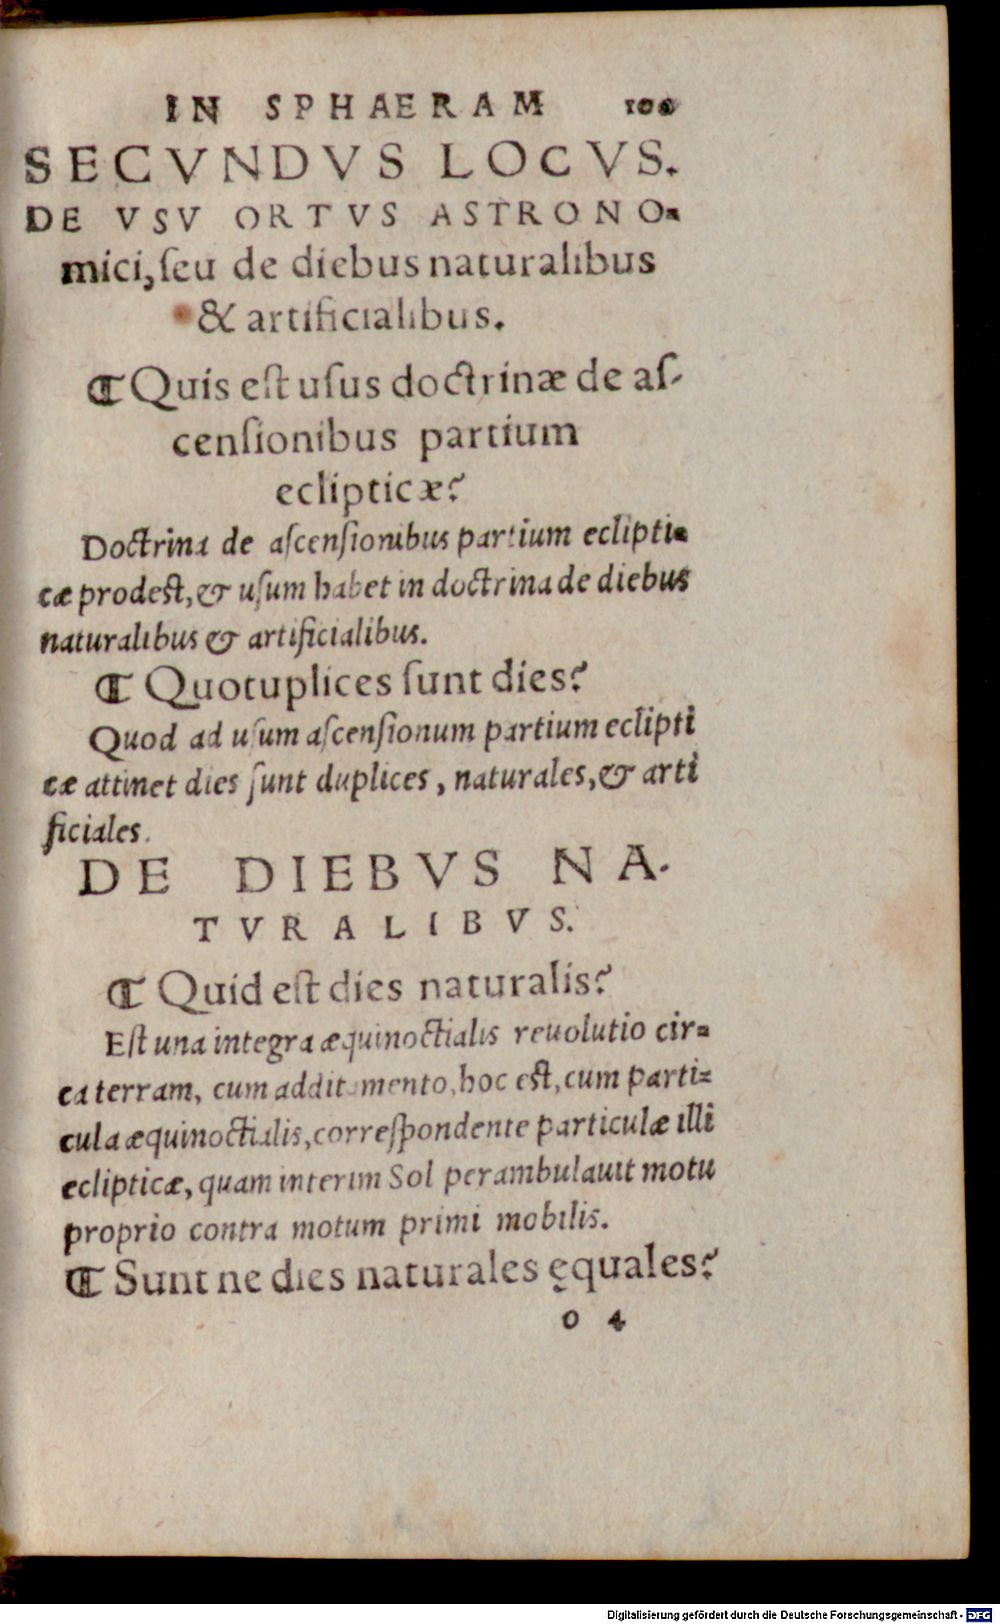 IN SPHAERAM
SECVNDVS LOCVS.
DE VSV ORTVS ASTRONO-
mici, ſeu de diebus naturalibus
& artificialibus.
¶ Quis eſt uſus doctrinæ de aſ-
cenſionibus partium
eclipticæ?
Doctrina de aſcenſionibus partium eclipti-
cæ prodeſt, & uſum habet in doctrina de diebus
naturalibus & artificialibus.
¶ Quotuplices ſunt dies?
Quod ad uſum aſcenſionum partium eclipti
cæ attinet dies ſunt duplices, naturales, & arti
ficiales.
DE DIEBVS NA-
TVRALIBVS.
¶ Quid eſt dies naturalis?
Eſt una integra æquinoctialis reuolutio cir-
ca terram, cum additamento, hoc eſt, cum parti-
cula æquinoctialis, correſpondente particulæ illi
eclipticæ, quam interim Sol perambulauit motu
proprio contra motum primi mobilis.
¶ Sunt ne dies naturales ęquales?
o 4
Digitalisierung gefördert durch die Deutsche Forschungsgemeinschaft - DFG